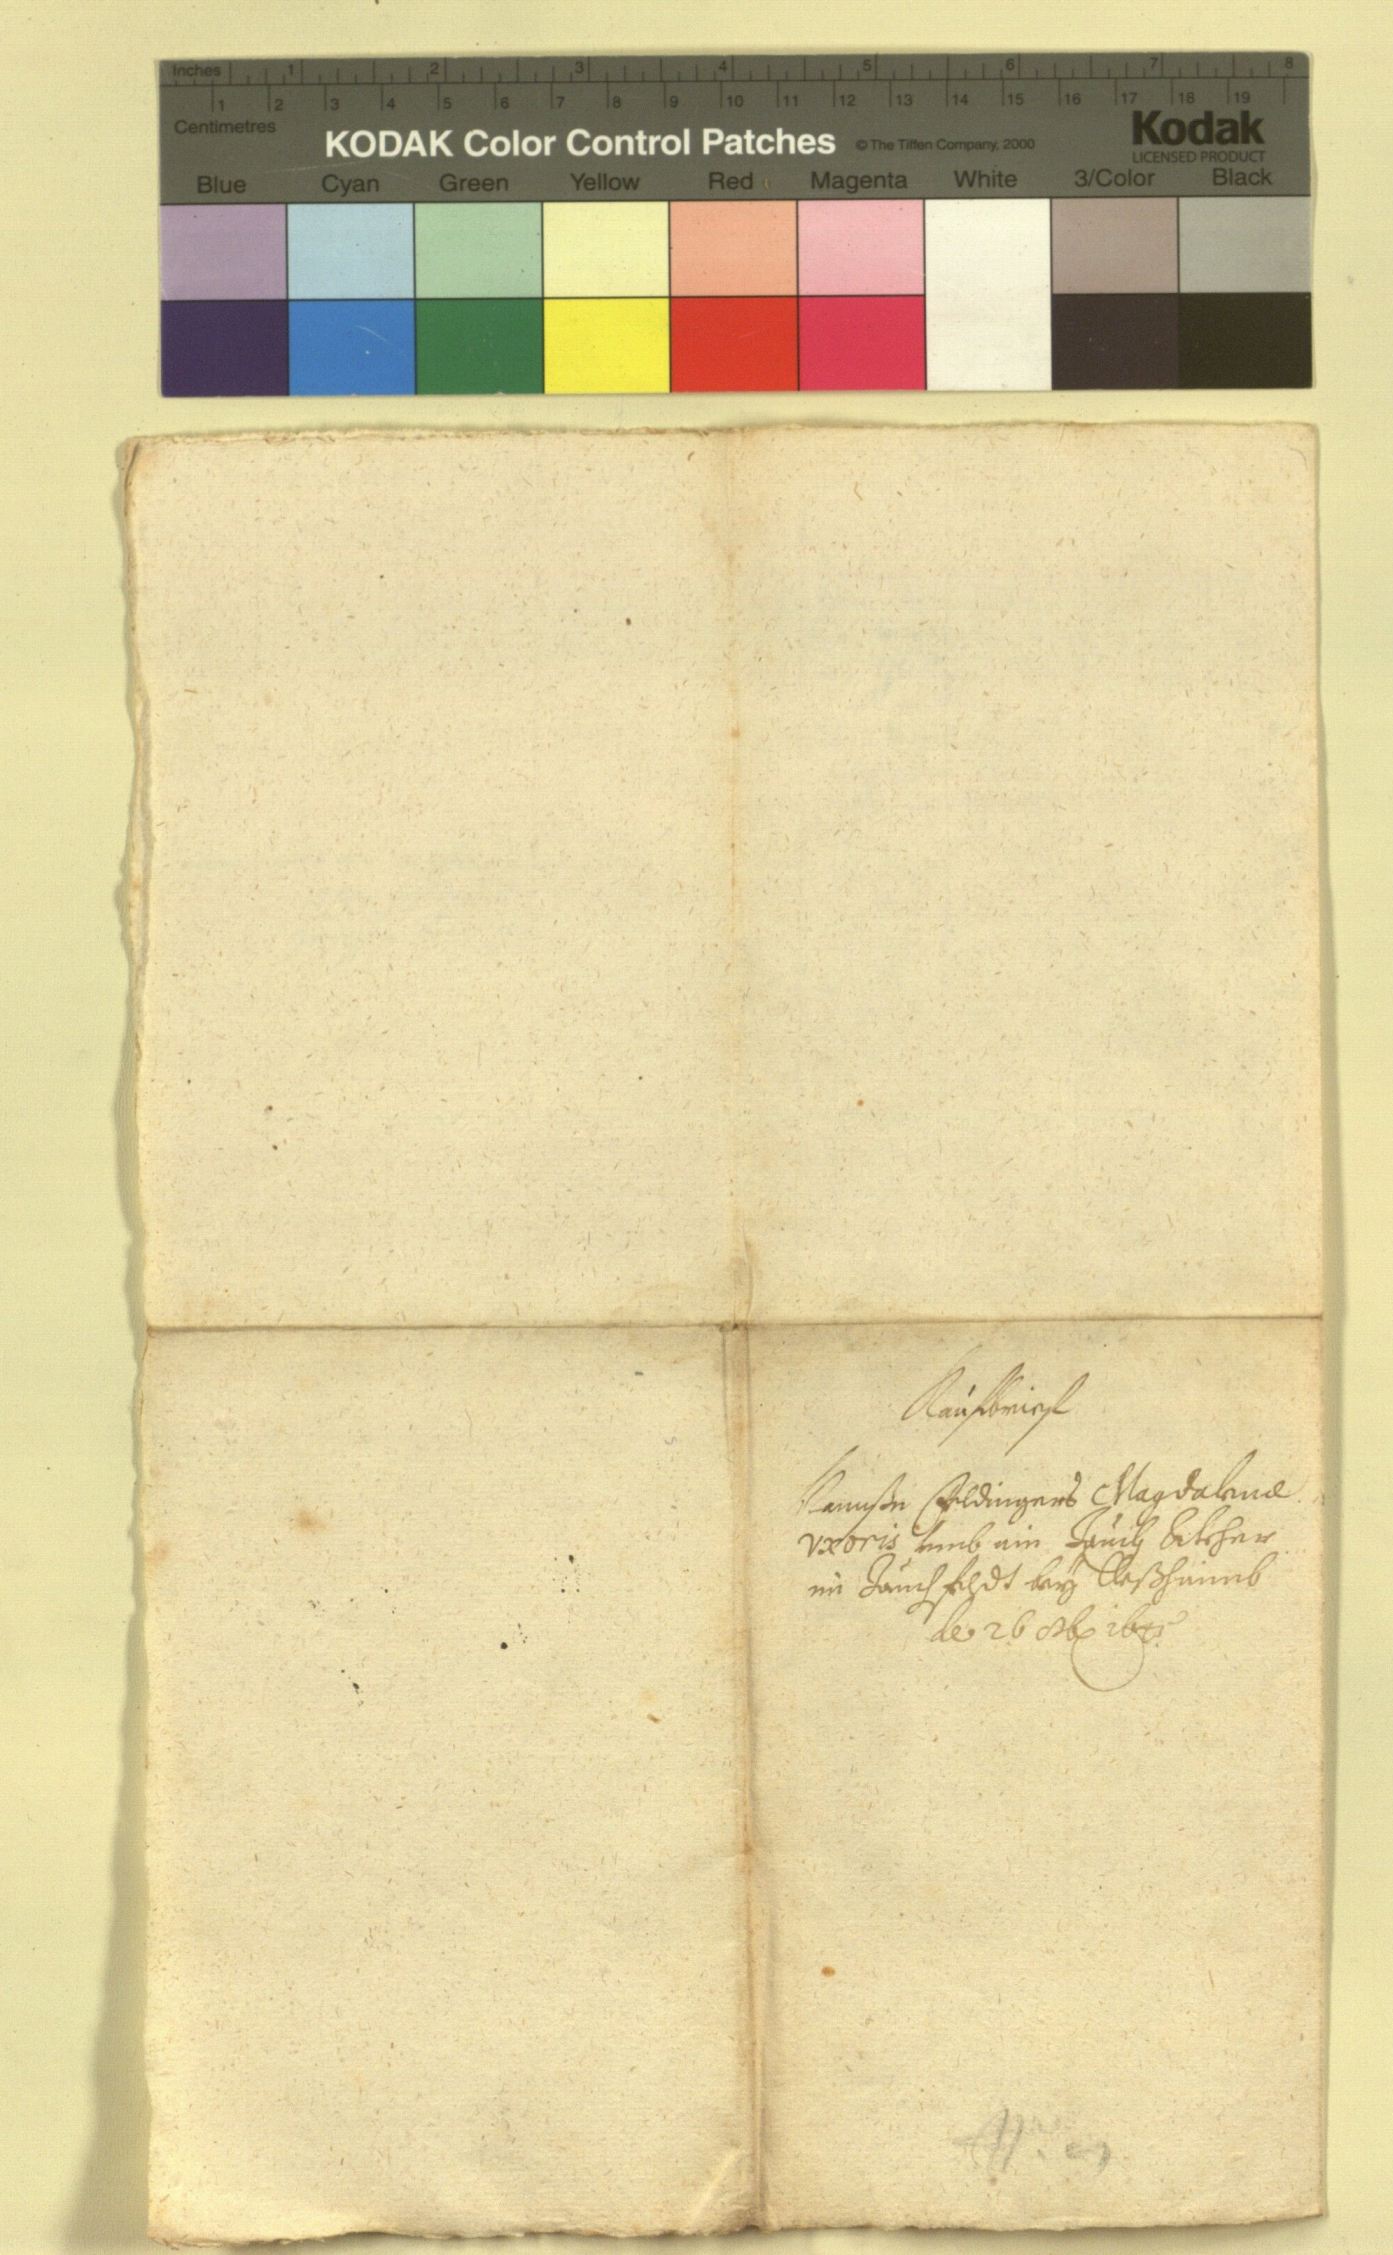 Inches 1 2 3 4 5 6 7 8
1 2 3 4 5 6 7 8 9 10 11 12 13 14 15 16 17 18 19
Centimetres
KODAK Color Control Patches © The Tiffen Company, 2000 Kodak
LICENSED PRODUCT
Blue Cyan Green Yellow Red Magenta White 3/Color Black
Kaufbrief
Magdalenæ
vxoris umb ein Jauch Ackher
im Jauchfeldt bey
26